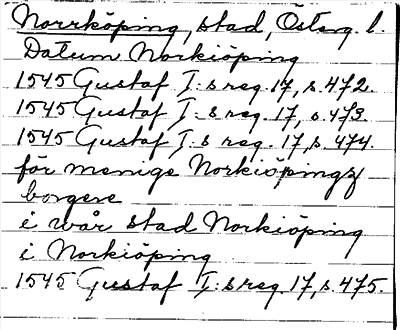 Norrköping, stad, Österg. l.
Datum Norkiöping
1545 Gustaf I:s reg. 17, s. 472.
1545 Gustaf I:s reg. 17, s. 473.
1545 Gustaf I:s reg. 17, s. 474.
för menige Norkiöpingz
borgere
i wår stad Norkiöping
i Norkiöping
1545 Gustaf I:s reg. 17, s. 475.